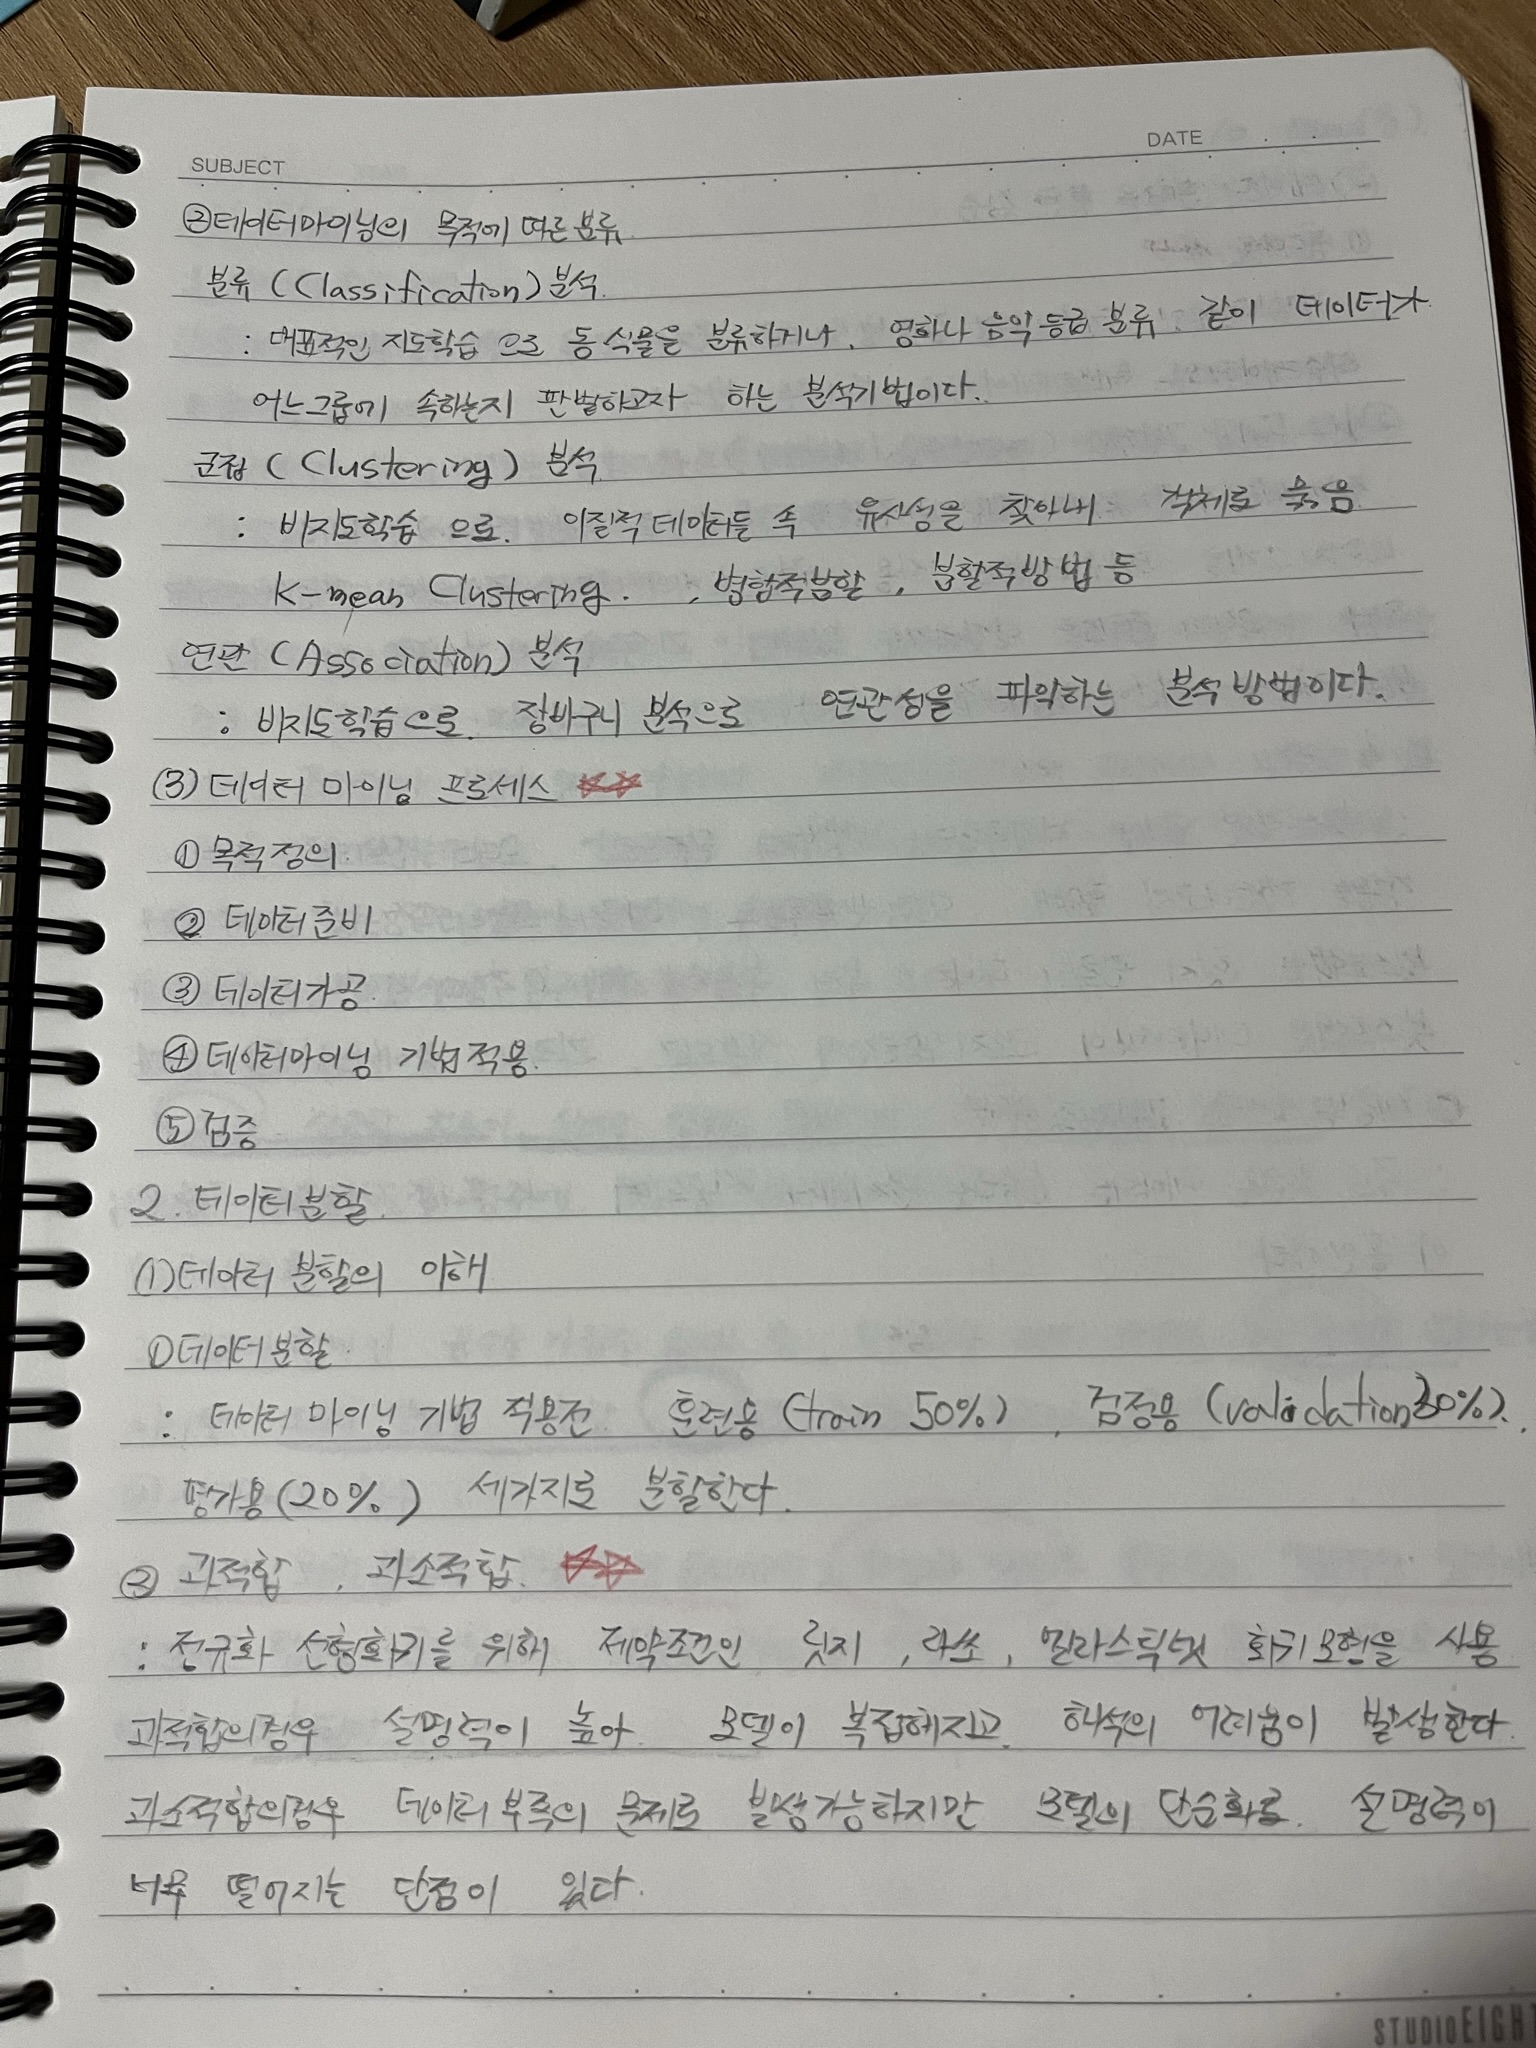 SUBJECT
DATE
②데이터마이닝의 목적에 따른 분류
분류 (Classification) 분석
: 대표적인 지도학습 으로 동식물을 분류하거나, 영화나 음악등급 분류 같이 데이터가
어느그룹에 속하는지 판별하고자 하는 분석기법이다.
군집 (Clustering) 분석
: 비지도학습 으로. 이질적 데이터들 속 유사성을 찾아내 객체로 묶음
K-mean Clustering. , 병합적분할, 분할적방법 등
연관 (Association) 분석
: 비지도학습으로. 장바구니 분석으로 연관성을 파악하는 분석방법이다.
(3) 데이터 마이닝 프로세스 ☆☆
① 목적정의
② 데이터준비
③ 데이터가공
④ 데이터마이닝 기법적용
⑤ 검증
2. 데이터분할
(1) 데이터 분할의 이해
① 데이터분할
: 데이터 마이닝 기법 적용전 훈련용 (train 50%), 검정용 (validation 30%),
평가용 (20%) 세가지로 분할한다.
② 과적합, 과소적합. ☆☆
: 정규화 선형회귀를 위해 제약조건인 릿지, 라쏘, 엘라스틱넷 회귀모형을 사용
과적합의경우 설명력이 높아 모델이 복잡해지고 해석의 어려움이 발생한다.
과소적합의경우 데이터 부족의 문제로 발생가능하지만 모델의 단순화로. 설명력이
너무 떨어지는 단점이 있다.
STUDIO EIGHT